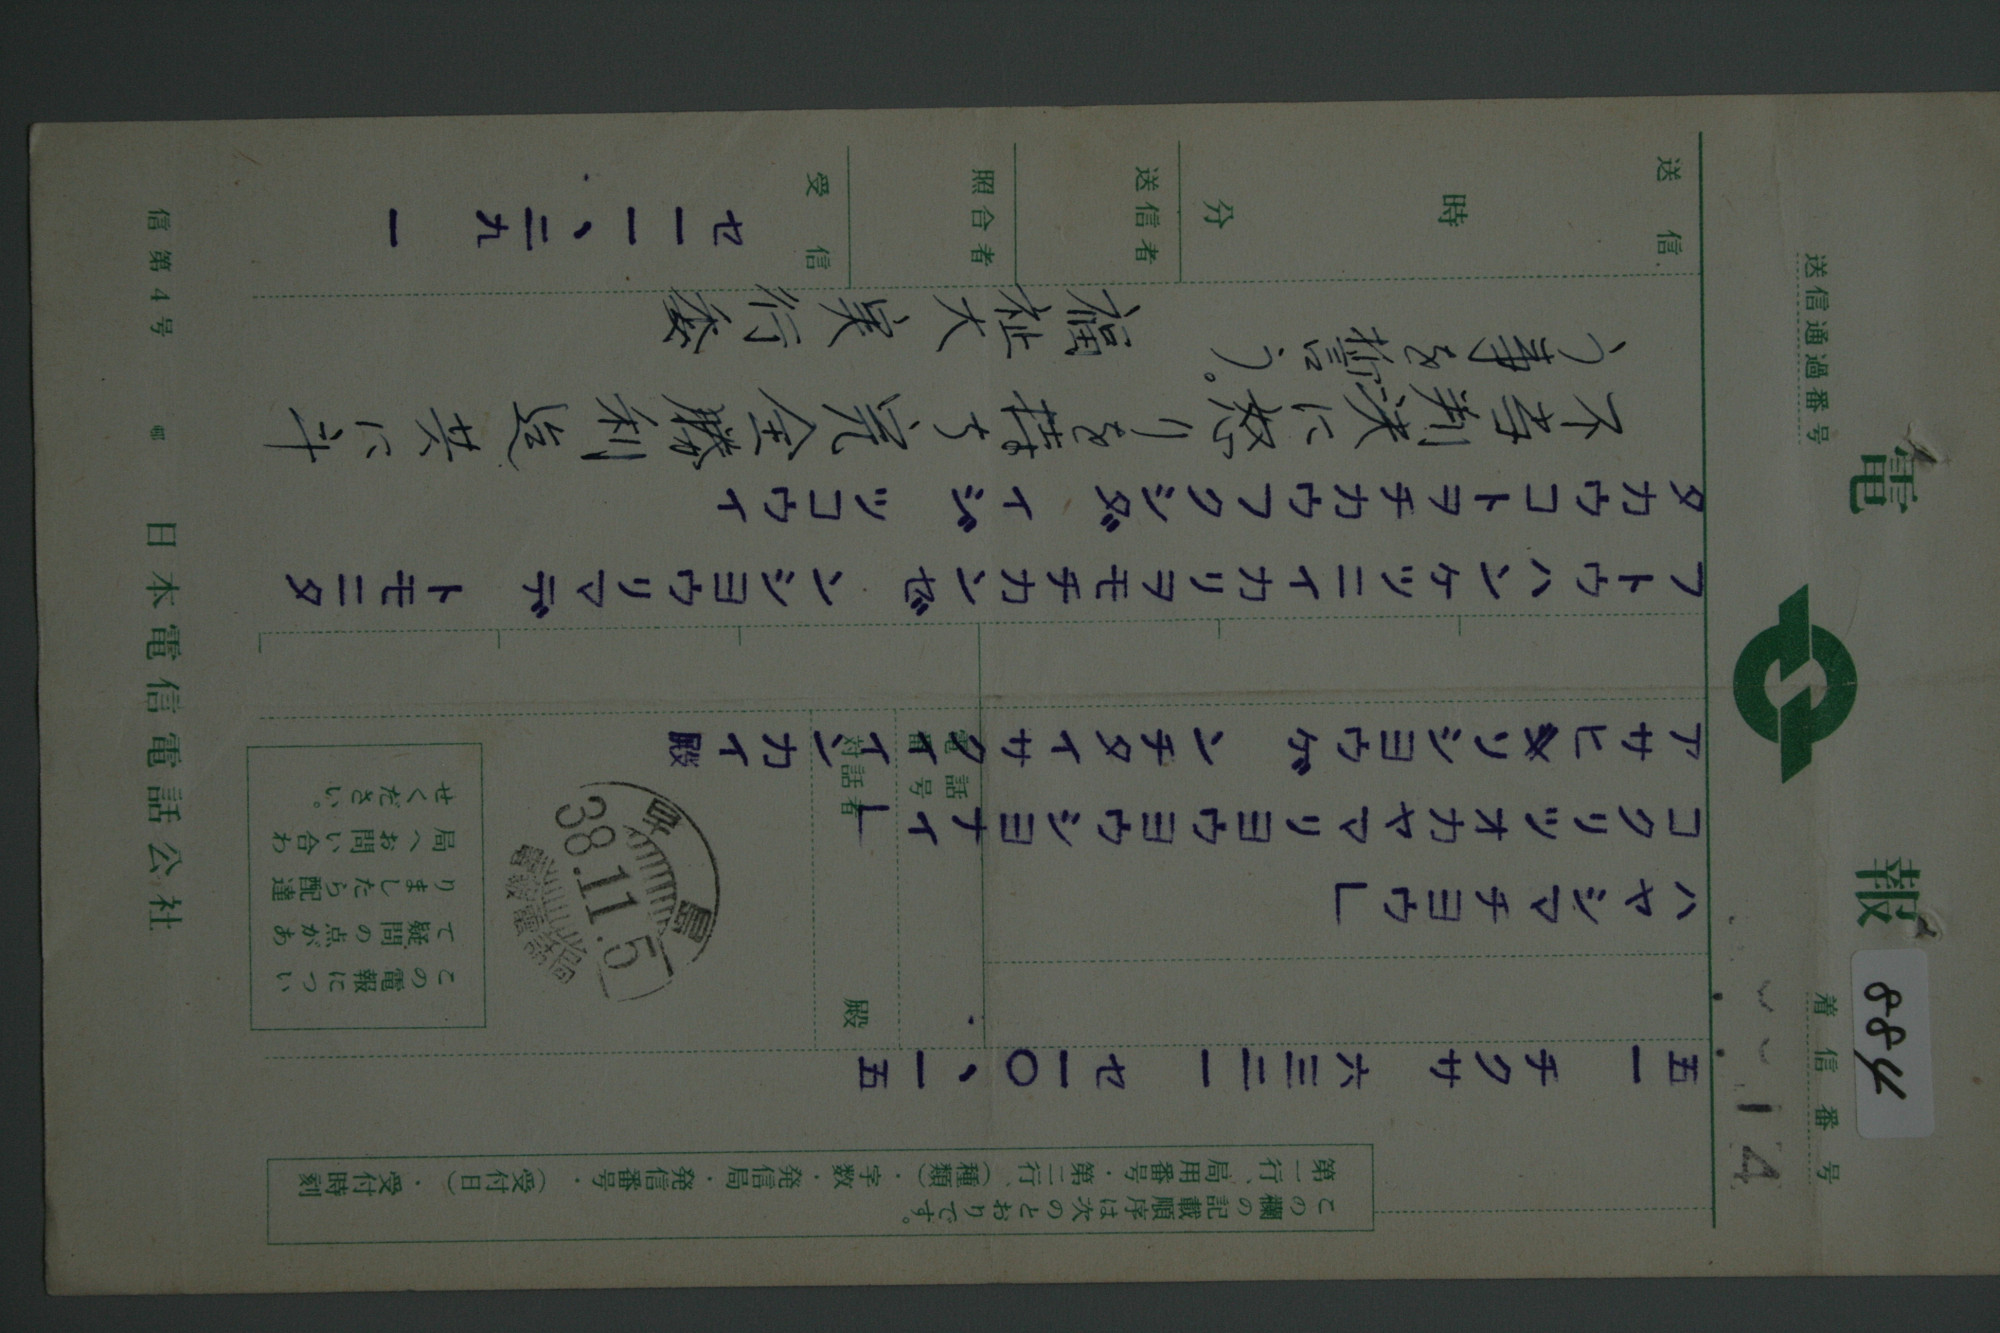 電報
着信番号
14
送信通過番号
884
この欄の記載順序は次のとおりです。
第一行、局用番号・第二行、(種類)・字数・発信局・発信番号・(受付日)・受付時刻
五一 チクサ 六三二一 セ一〇、一五
ハヤシマチヨウ」
コクリツオカヤマリヨウヨウシヨナイ」
アサヒソシヨウゲンチタイサクイインカイ殿
電話番号
対話者 殿
早島
38.11.5
この電報につい
て疑問の点があ
りましたら配達
局へお問い合わ
せください。
フトウハンケツニイカリヲモチカンゼンシヨウリマデ トモニタ
タカウコトヲチカウフクシダイジツコウイ
不当判決に怒りを持ち完全勝利迄共に斗
う事を誓う。
福祉大実行委
送信
時 分
送信者
照合者
受信
セ一一、二九 一
信第4号
日本電信電話公社